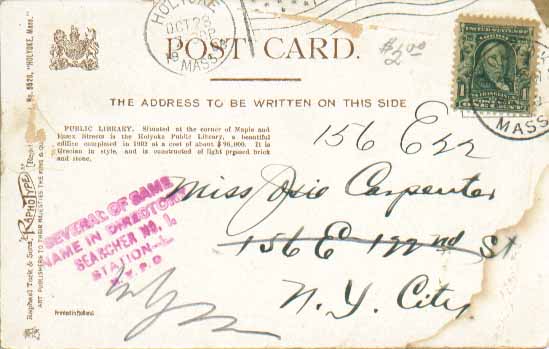 HOLYOKE
OCT 23
MASS.
POST CARD.
$2.00
2
1
MASS
THE ADDRESS TO BE WRITTEN ON THIS SIDE
PUBLIC LIBRARY. Situated at the corner of Maple and
Essex Streets is the Holyoke Public Library, a beautiful
edifice completed in 1902 at a cost of about $96,000. It is
Grecian in style, and is constructed of light pressed brick
and stone.
156 E 22
Miss Josie Carpenter
156 E 122nd St
N. Y. City.
SEVERAL OF SAME
NAME IN DIRECTORY
SEARCHER NO. 1.
STATION L
N.Y.P.O
Printed in Holland
Raphael Tuck & Sons' "RAPHOTYPE"
ART PUBLISHERS TO THEIR MAJESTIES THE KING &
No. 5020, "HOLYOKE, Mass."